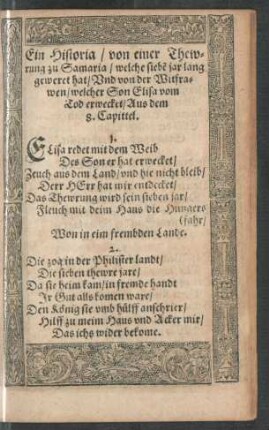 Ein Historia / von einer Thew-
rung zu Samaria / welche siebē jar lang
geweret hat / Vnd von der Witfra-
wen / welcher Son Elisa vom
Tod erwecket / Aus dem
8. Capittel.
1.
ELisa redet mit dem Weib
Des Son er hat erwecket /
Zeuch aus dem Land / vnd hie nicht bleib /
Derr HErr hat mir entdecket /
Das Thewrung wird sein sieben jar /
Fleuch mit deim Haus die Hungers
(fahr /
Won in eim frembden Lande.
2.
Die zog in der Philister landt /
Die sieben thewre jare /
Da sie heim kam / in fremde handt
Jr Gut alls komen ware /
Den König sie vmb hülff anschrier /
Hilff zu meim Haus vnd Acker mir /
Das ichs wider bekome.